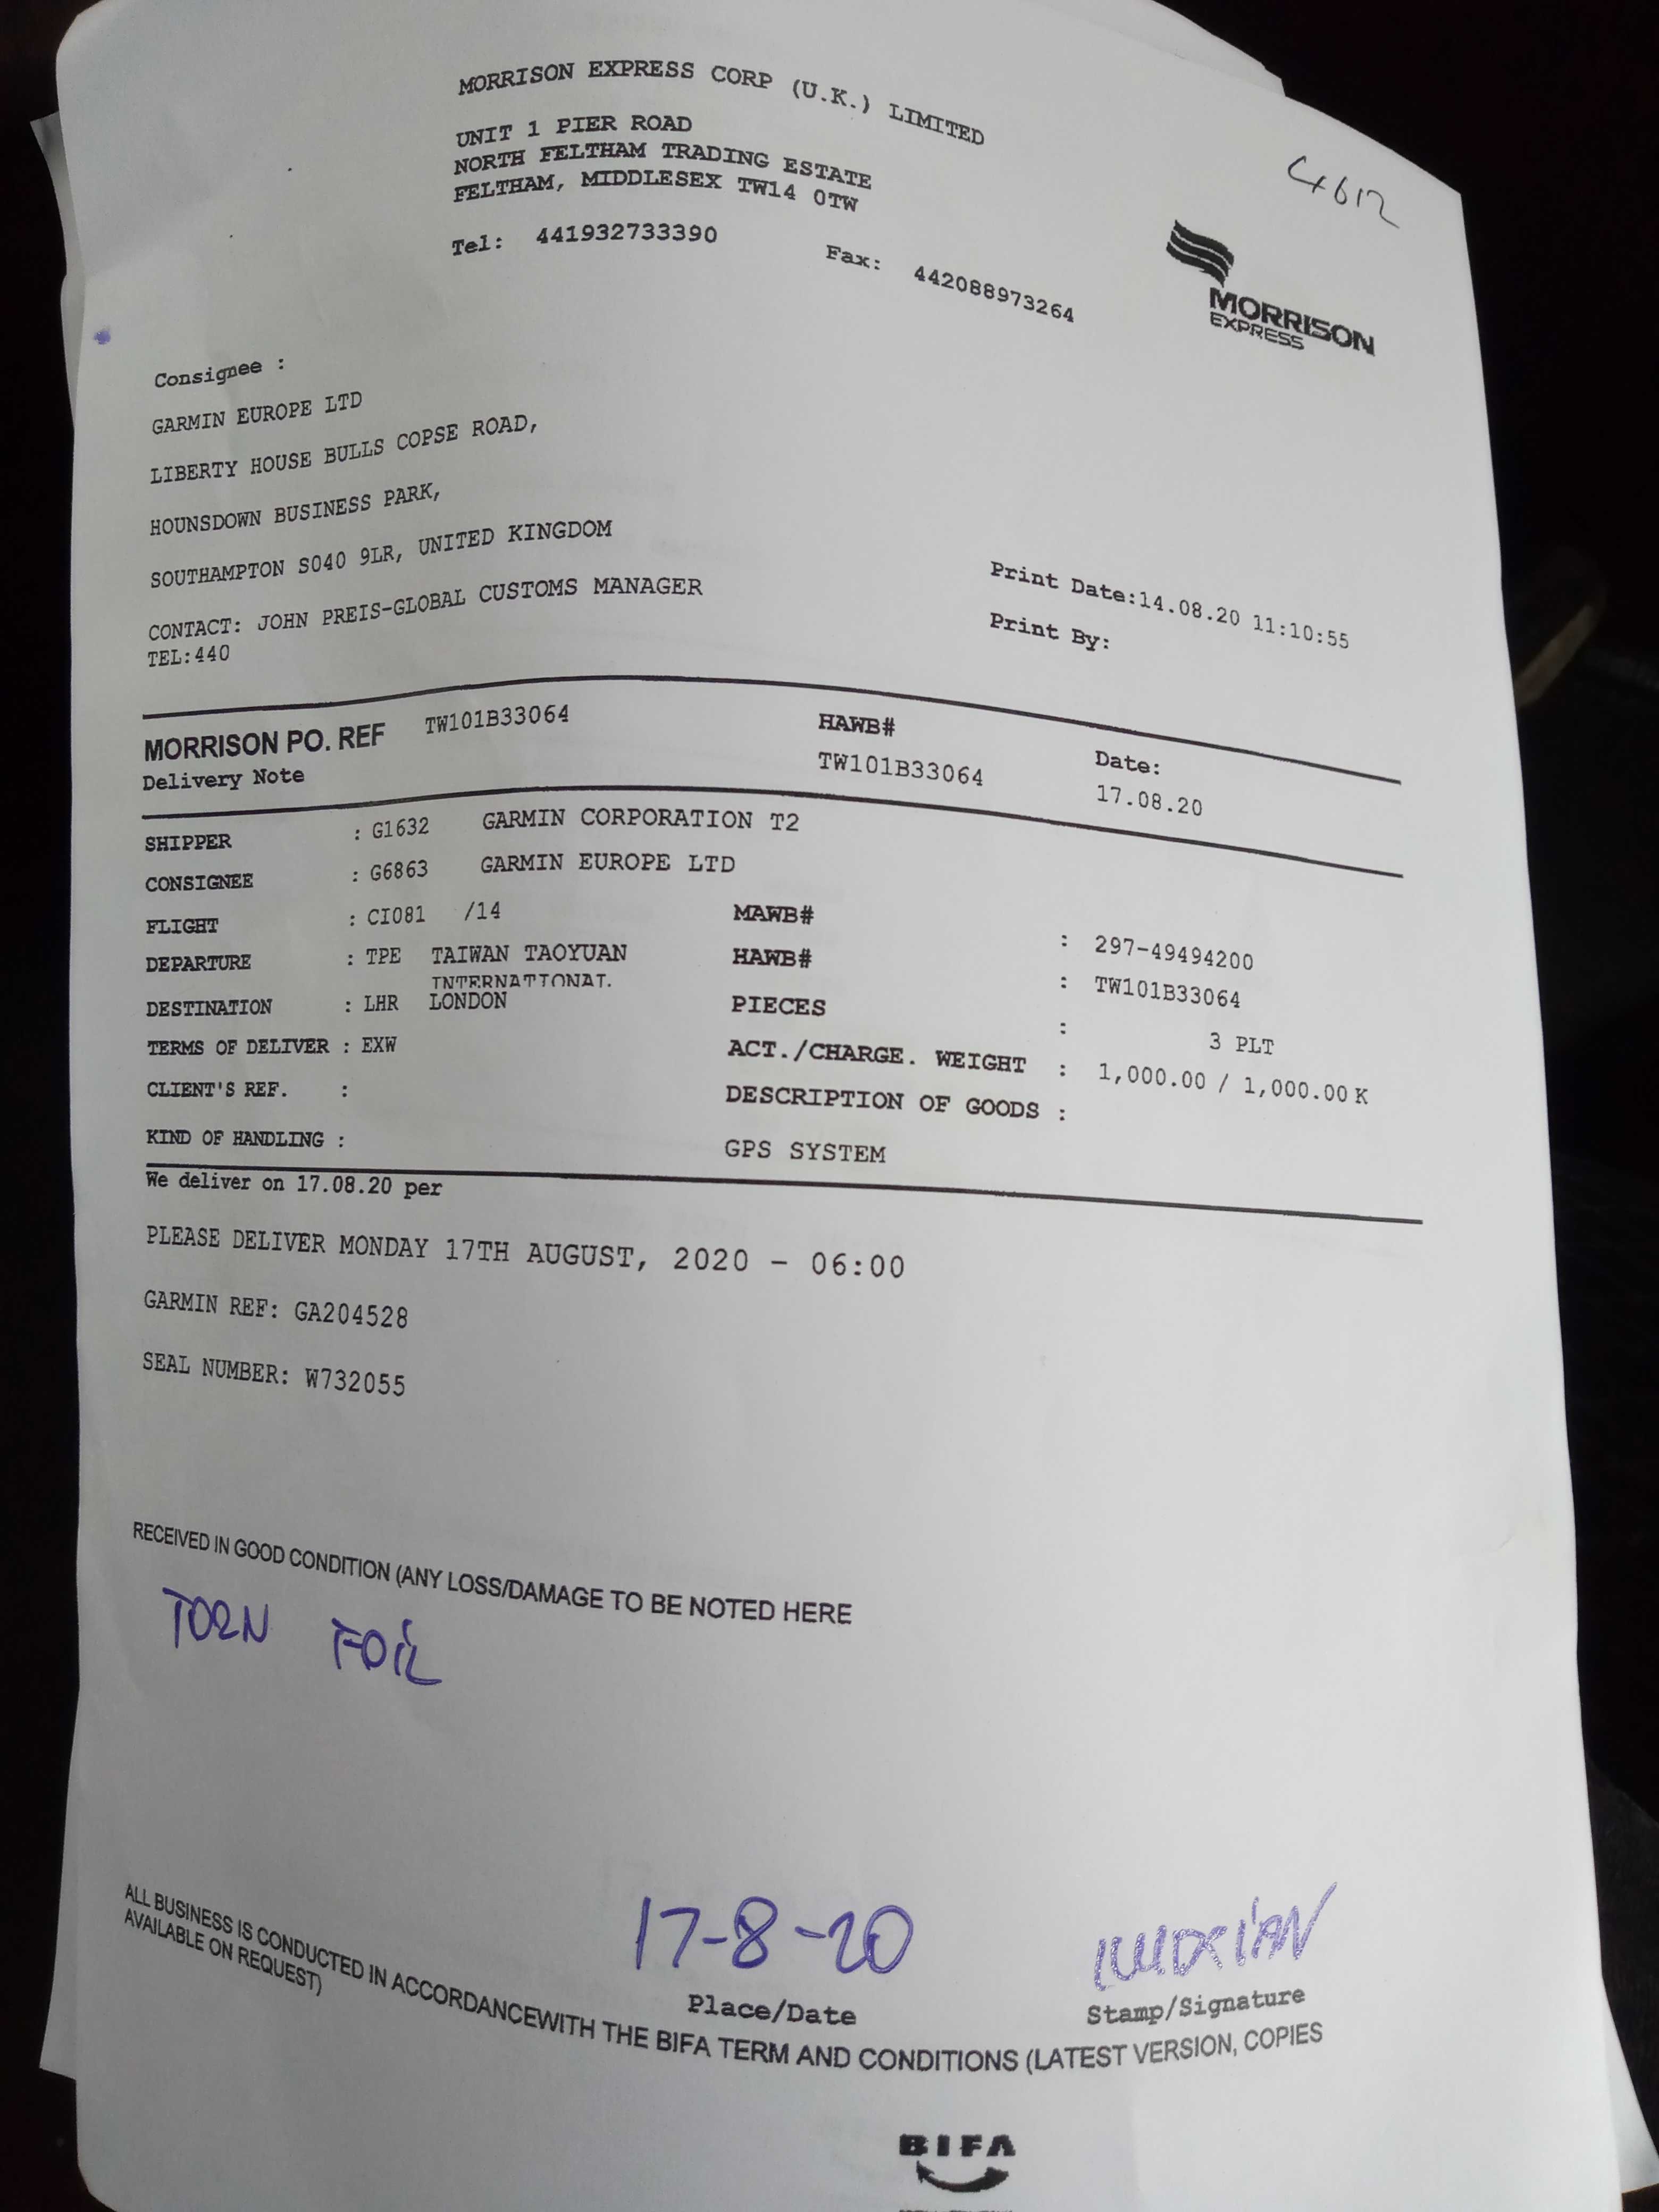 MORRISON EXPRESS CORP (U.K.) LIMITED
UNIT 1 PIER ROAD
NORTH FELTHAM TRADING ESTATE
FELTHAM, MIDDLESEX TW14 0TW
Tel: 441932733390 Fax: 442088973264
4612
MORRISON
EXPRESS
Consignee :
GARMIN EUROPE LTD
LIBERTY HOUSE BULLS COPSE ROAD,
HOUNSDOWN BUSINESS PARK,
SOUTHAMPTON SO40 9LR, UNITED KINGDOM
CONTACT: JOHN PREIS-GLOBAL CUSTOMS MANAGER
TEL:440
Print Date:14.08.20 11:10:55
Print By:
MORRISON PO. REF TW101B33064 HAWB# Date:
Delivery Note TW101B33064 17.08.20
SHIPPER : G1632 GARMIN CORPORATION T2
CONSIGNEE : G6863 GARMIN EUROPE LTD
FLIGHT : CI081 /14 MAWB# : 297-49494200
DEPARTURE : TPE TAIWAN TAOYUAN HAWB# : TW101B33064
INTERNATIONAL
DESTINATION : LHR LONDON PIECES : 3 PLT
TERMS OF DELIVER : EXW ACT./CHARGE. WEIGHT : 1,000.00 / 1,000.00 K
CLIENT'S REF. : DESCRIPTION OF GOODS :
KIND OF HANDLING : GPS SYSTEM
We deliver on 17.08.20 per
PLEASE DELIVER MONDAY 17TH AUGUST, 2020 - 06:00
GARMIN REF: GA204528
SEAL NUMBER: W732055
RECEIVED IN GOOD CONDITION (ANY LOSS/DAMAGE TO BE NOTED HERE
TORN FOIL
17-8-20
Place/Date Stamp/Signature
ALL BUSINESS IS CONDUCTED IN ACCORDANCEWITH THE BIFA TERM AND CONDITIONS (LATEST VERSION, COPIES
AVAILABLE ON REQUEST)
BIFA